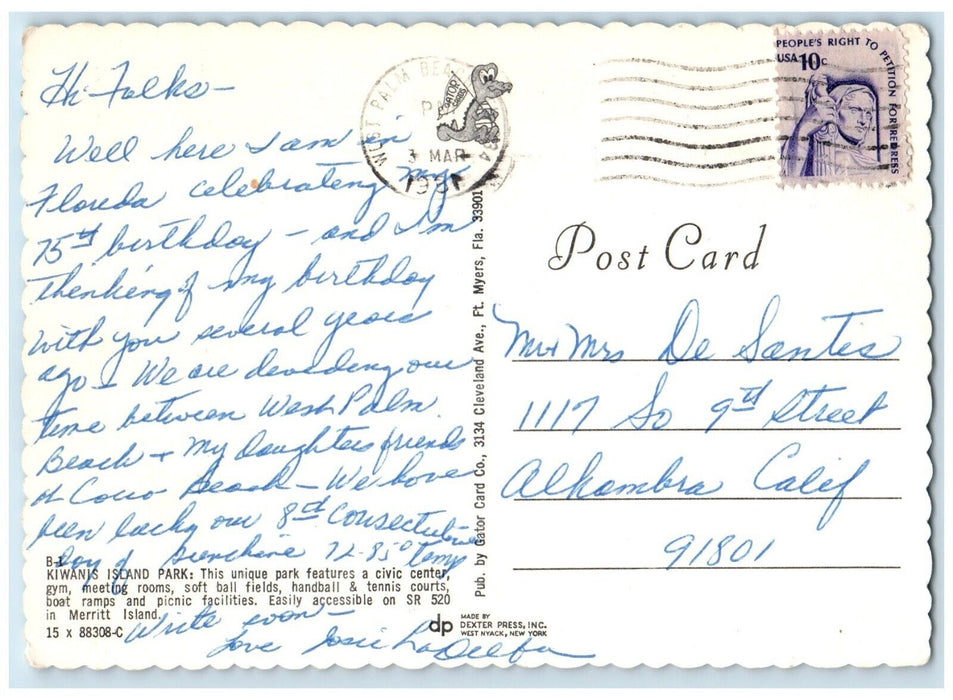 Hi-Folks-
Well here I am in
Florida celebrating my
75th birthday - and I'm
thinking of my birthday
with you several years
ago - We are devideng our
time between West Palm
Beach + My Daughters friends
at Coco Beach - We have
been lucky our 8th Consecutive
Day of Sunshine 72-85° temp
Write soon -
Love Josie
B-1
KIWANIS ISLAND PARK: This unique park features a civic center,
gym, meeting rooms, soft ball fields, handball & tennis courts,
boat ramps and picnic facilities. Easily accessible on SR 520
in Merritt Island.
15 x 88308-C
Pub. by Gator Card Co., 3134 Cleveland Ave., Ft. Myers, Fla. 33901
dp
MADE BY
DEXTER PRESS, INC.
WEST NYACK, NEW YORK
WEST PALM BEACH
3 MAR
GATOR
CARDS
PEOPLE'S RIGHT TO PETITION FOR REDRESS
USA 10c
Post Card
Mr + Mrs De Santis
1117 So 9th Street
Alhambra Calif
91801